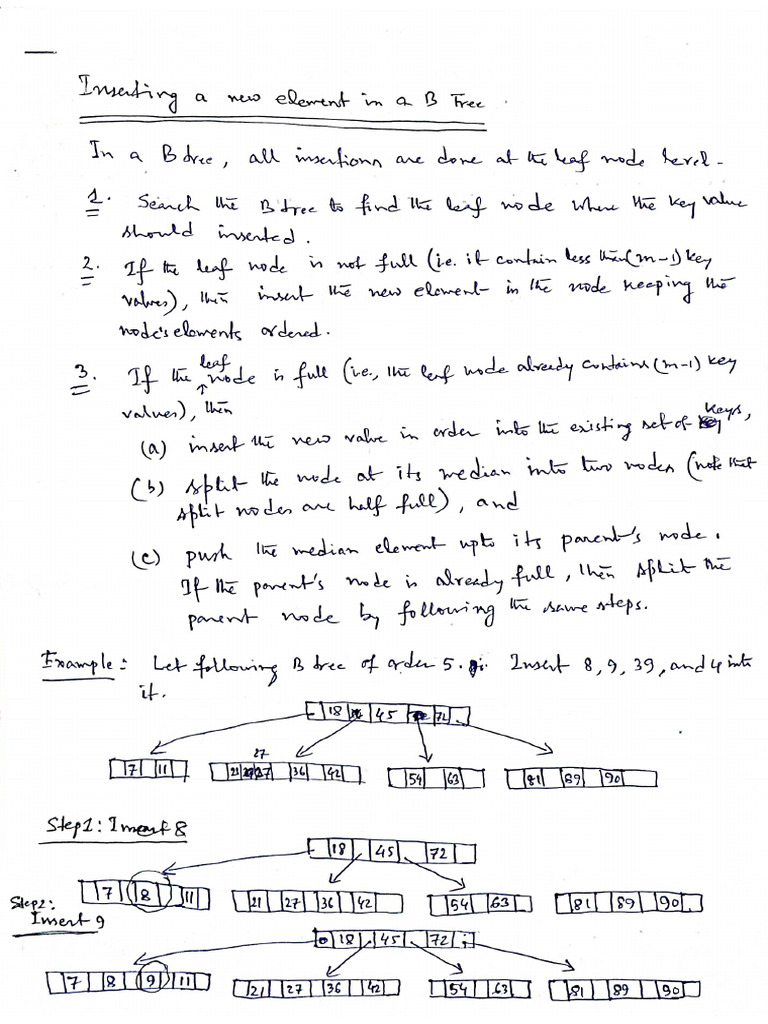 Inserting a new element in a B Tree.
In a B tree, all insertions are done at the leaf node level.
1. Search the B tree to find the leaf node where the key value
should inserted.
2. If the leaf node is not full (i.e. it contain less than (m-1) key
values), then insert the new element in the node keeping the
node's elements ordered.
3. If the leaf node is full (i.e., the leaf node already contains (m-1) key
values), then
(a) insert the new value in order into the existing set of keys,
(b) split the node at its median into two nodes (note that
split nodes are half full), and
(c) push the median element upto its parent's node.
If the parent's node is already full, then split the
parent node by following the same steps.
Example: Let following B tree of order 5. Insert 8, 9, 39, and 4 into
it.
18 45 72
27
7 11 21 27 36 42 54 63 81 89 90
Step1: Insert 8
18 45 72
7 8 11 21 27 36 42 54 63 81 89 90
Step2:
Insert 9
18 45 72
7 8 9 11 21 27 36 42 54 63 81 89 90